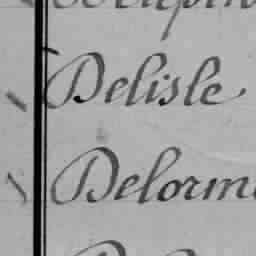 Delisle
Delorm